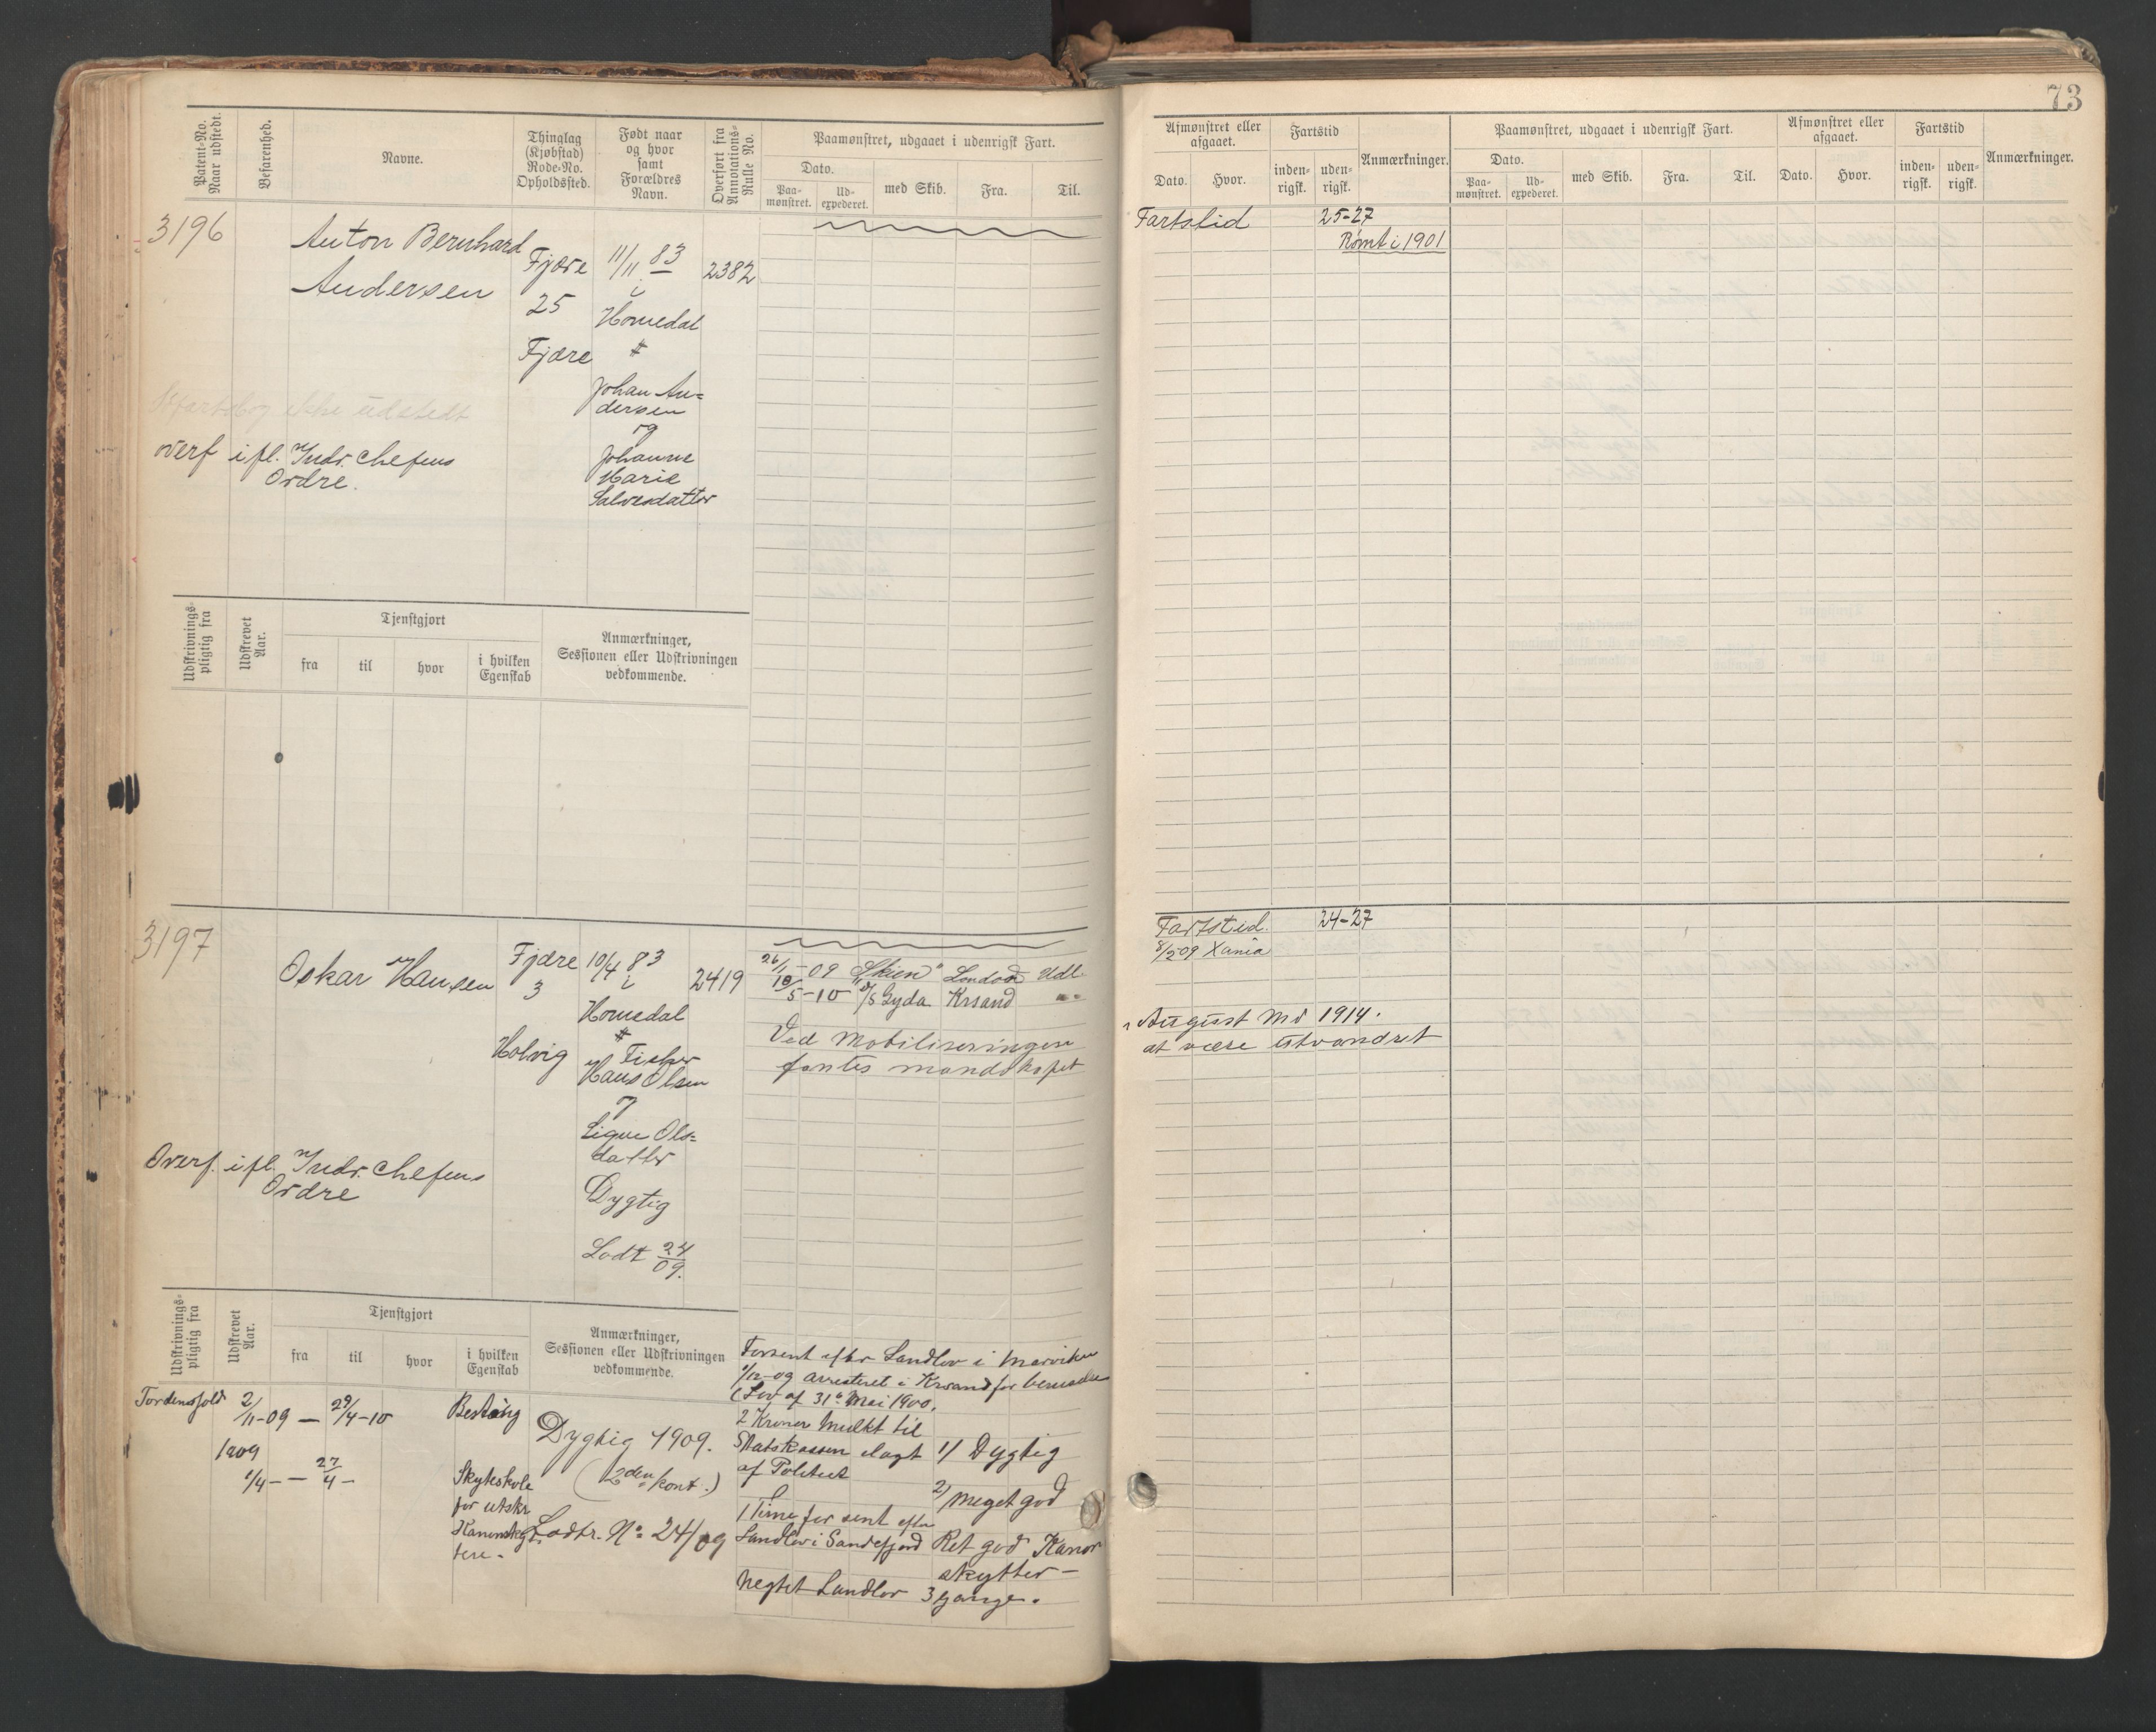 73
Patent-No. Naar udstedt.
Befarenhed.
Navne.
Thinglag (Kjøbstad) Rode-No. Opholdssted.
Født naar og hvor samt Forældres Navn.
Overført fra Annotations-Rulle No.
Paamønstret, udgaaet i udenrigsk Fart.
Dato.
Paa-mønstret.
Ud-expederet.
med Skib.
Fra.
Til.
Afmønstret eller afgaaet.
Dato.
Hvor.
Fartstid
inden-rigsk.
uden-rigsk.
Anmærkninger.
Paamønstret, udgaaet i udenrigsk Fart.
Dato.
Paa-mønstret.
Ud-expederet.
med Skib.
Fra.
Til.
Afmønstret eller afgaaet.
Dato.
Hvor.
Fartstid
inden-rigsk.
uden-rigsk.
Anmærkninger.
3196
Anton Bernhard
Andersen
Fjære
25
Fjære
11/11 83
i
Homedal
Johan An-
dersen
og
Johanne
Marie
Salvesdatter
2382
Fartstid 25-27
Rømt i 1901
Sjøfartsbog ikke udstedt
overf ifl. Indr. chefens
Ordre.
Udskrivnings-pligtig fra
Udskrevet Aar.
Tjenstgjort
fra
til
hvor
i hvilken Egenskab
Anmærkninger, Sessionen eller Udskrivningen vedkommende.
3197
Oskar Hansen
Fjære
3
Holvig
10/4 83
i
Homedal
Fisker
Hans Olsen
og
Signe Ols-
datter
Dygtig
Lodt 24/09.
2419
26/11-09 "Skien" London Udl.
18/5-10 D/S Gyda Krsand -"-
Ved Mobiliseringen
fantes mandskapet
Fartstid. 24-27
8/5 09 Xania
i August Md 1914.
at være utvandret
Overf. ifl. Indr. chefens
Ordre
Udskrivnings-pligtig fra
Udskrevet Aar.
Tjenstgjort
fra
til
hvor
i hvilken Egenskab
Anmærkninger, Sessionen eller Udskrivningen vedkommende.
Tordenskjold 2/11-09 — 29/4-10
1909
1/4- — 27/4 -
Skyteskole
for utskr
Kanonsky
tere.
Dygtig 1909.
(2den kont.)
Lodtr. No 24/09
Forsent efter Landlov i Marviken
1/12-09 arresteret i Krsand for beruselse
(Lov af 31te Mai 1900.
2 Kroner Mulkt til
Statskassen ilagt
af Politiet
1 Time for sent efter
Landlov i Sandefjord
Negtet Landlov 3 gange.
1/ Dygtig
2/ Meget god
Ret god Kanon
skytter -